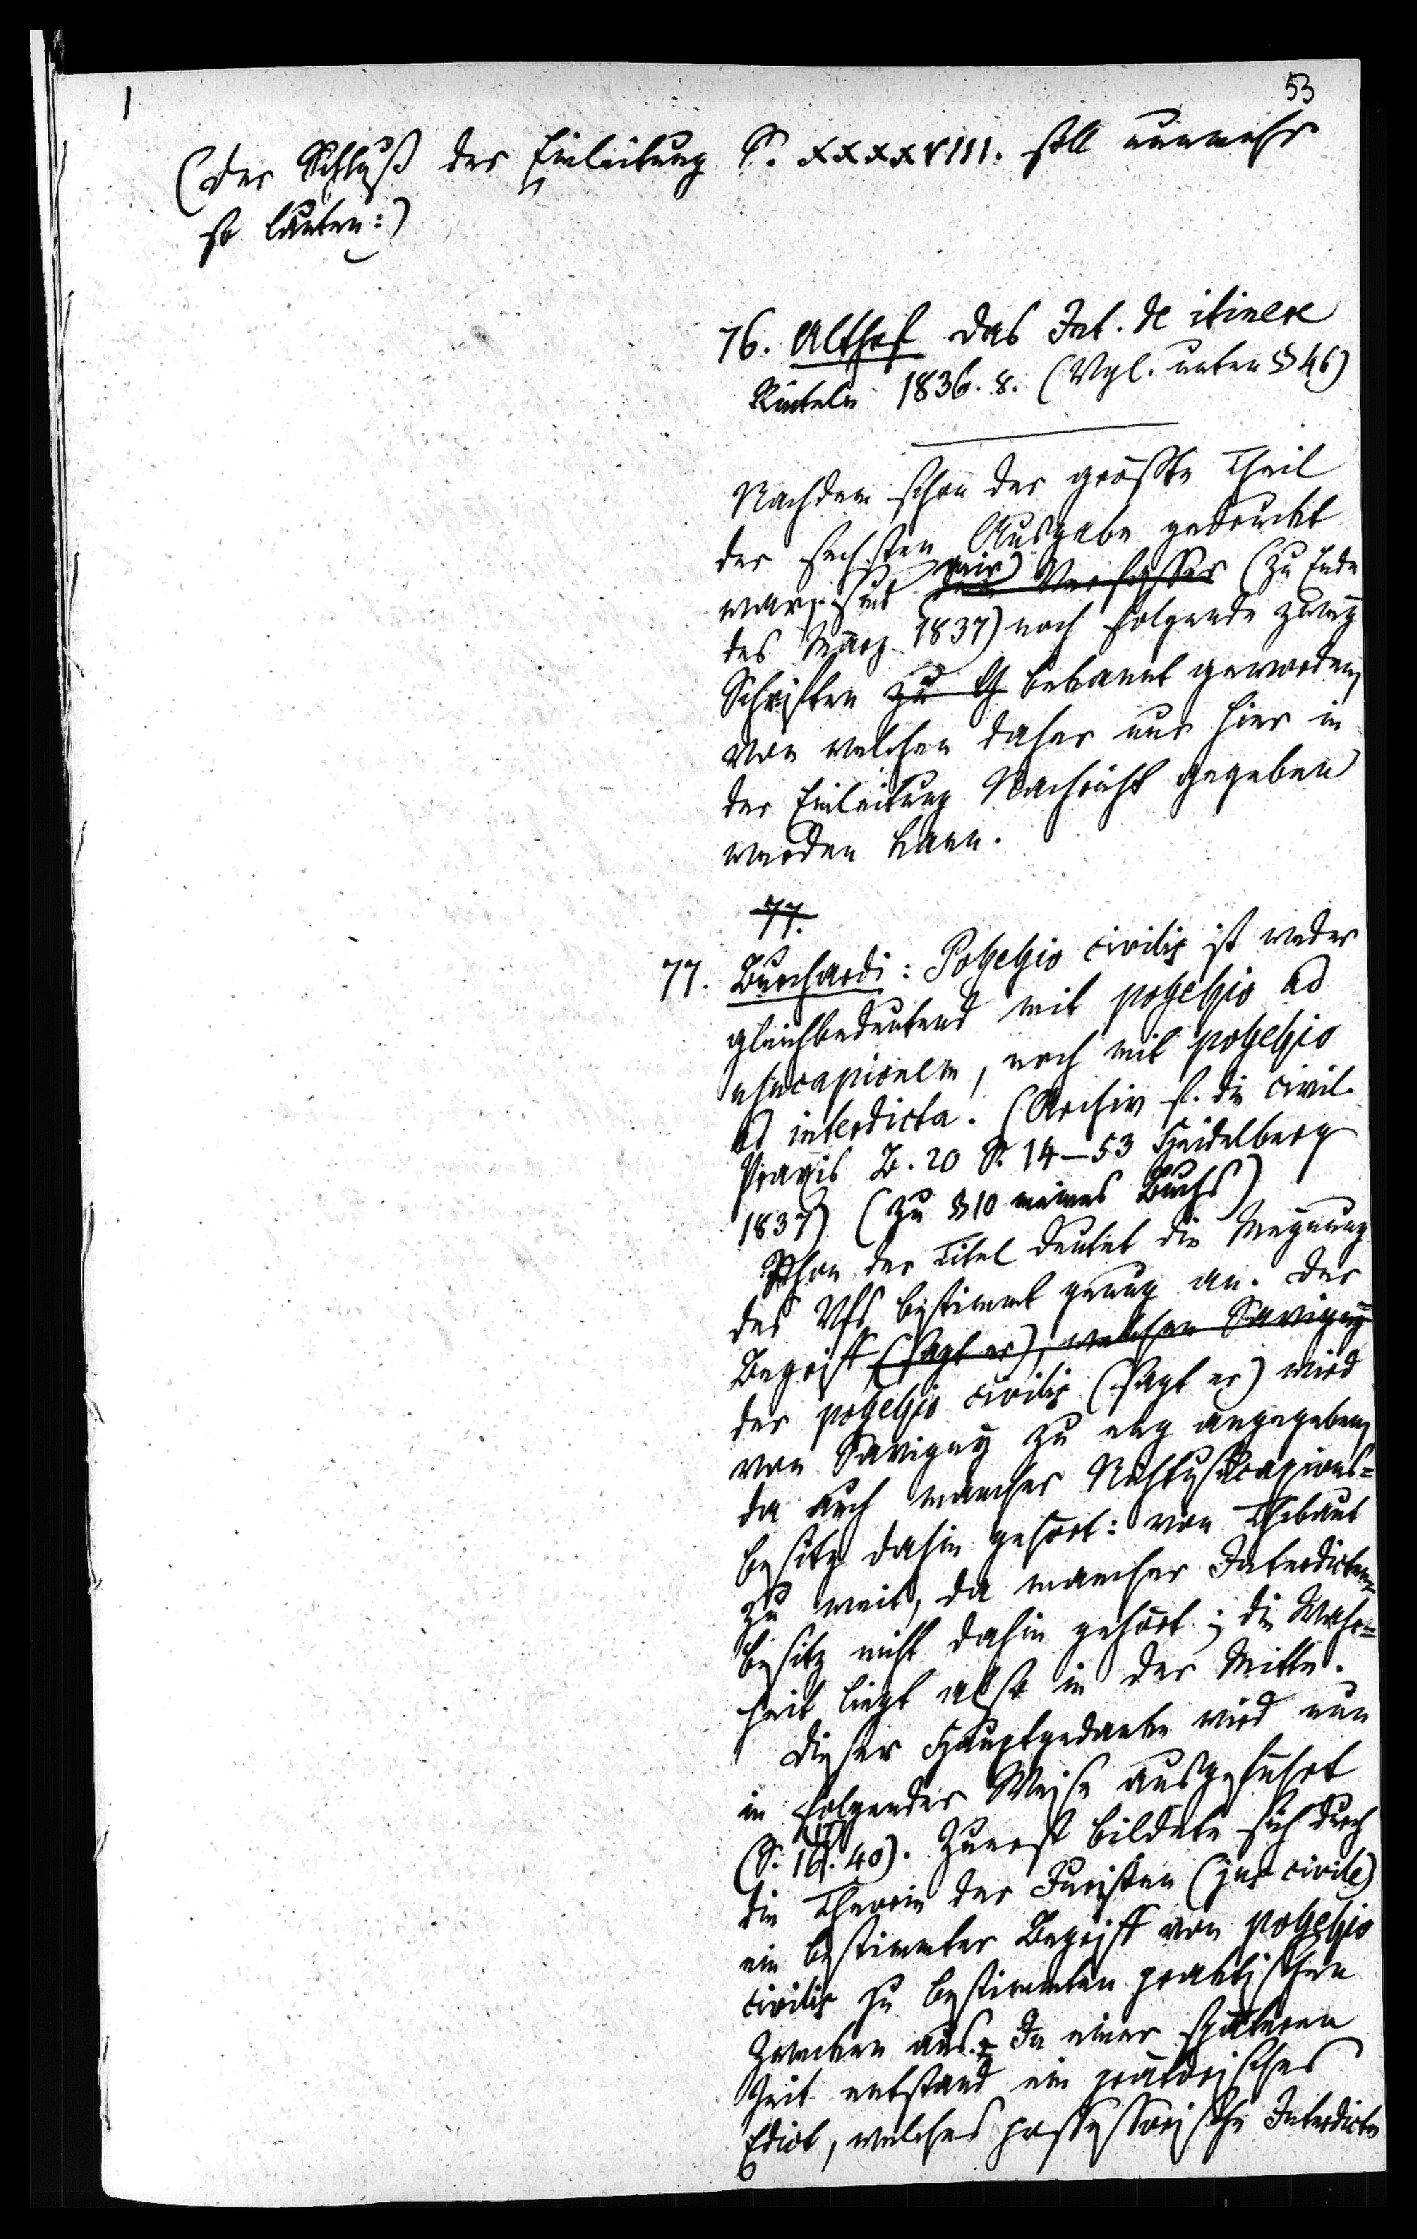 1
53
(Der Schluß der Einleitung S. XXXXVIII. soll nunmehr
so lauten:)
76. Althof das Int. de itinere
Rinteln 1836. 8. (Vgl. unten § 46)
Nachdem schon der größte Theil
der sechsten Ausgabe gedruckt
war, sind mir dem Verfasser (zu Ende
des März 1837) noch folgende zwey
Schriften zu G bekannt geworden,
von welchen daher nur hier in
der Einleitung Nachricht gegeben
werden kann.
77.
77. Burchardi: Possessio civilis ist weder
gleichbedeutend mit possessio ad
usucapionem, noch mit possessio
ad interdicta. (Archiv f. die civil.
Praxis B. 20 S. 14–53 Heidelberg
1837) (Zu § 10 meines Buchs)
Schon der Titel deutet die Meynung
des Vfs bestimmt genug an. Der
Begriff (sagt er), welchen Savigny
der possessio civilis (sagt er) wird
von Savigny zu eng angegeben,
da auch mancher Nichtusucapions=
besitz dahin gehört: von Thibaut
zu weit, da mancher Interdicten=
besitz nicht dahin gehört; die Wahr=
heit liegt also in der Mitte.
Dieser Hauptgedanke wird nun
in folgender Weise ausgeführt
(S. 16. 40). Zuerst bildete sich durch
die Theorie der Juristen (jus civile)
ein bestimmter Begriff von possessio
civilis zu bestimmten praktischen
Zwecken aus. In einer späteren
Zeit entstand ein prätorisches
Edict, welches possessorische Interdicte